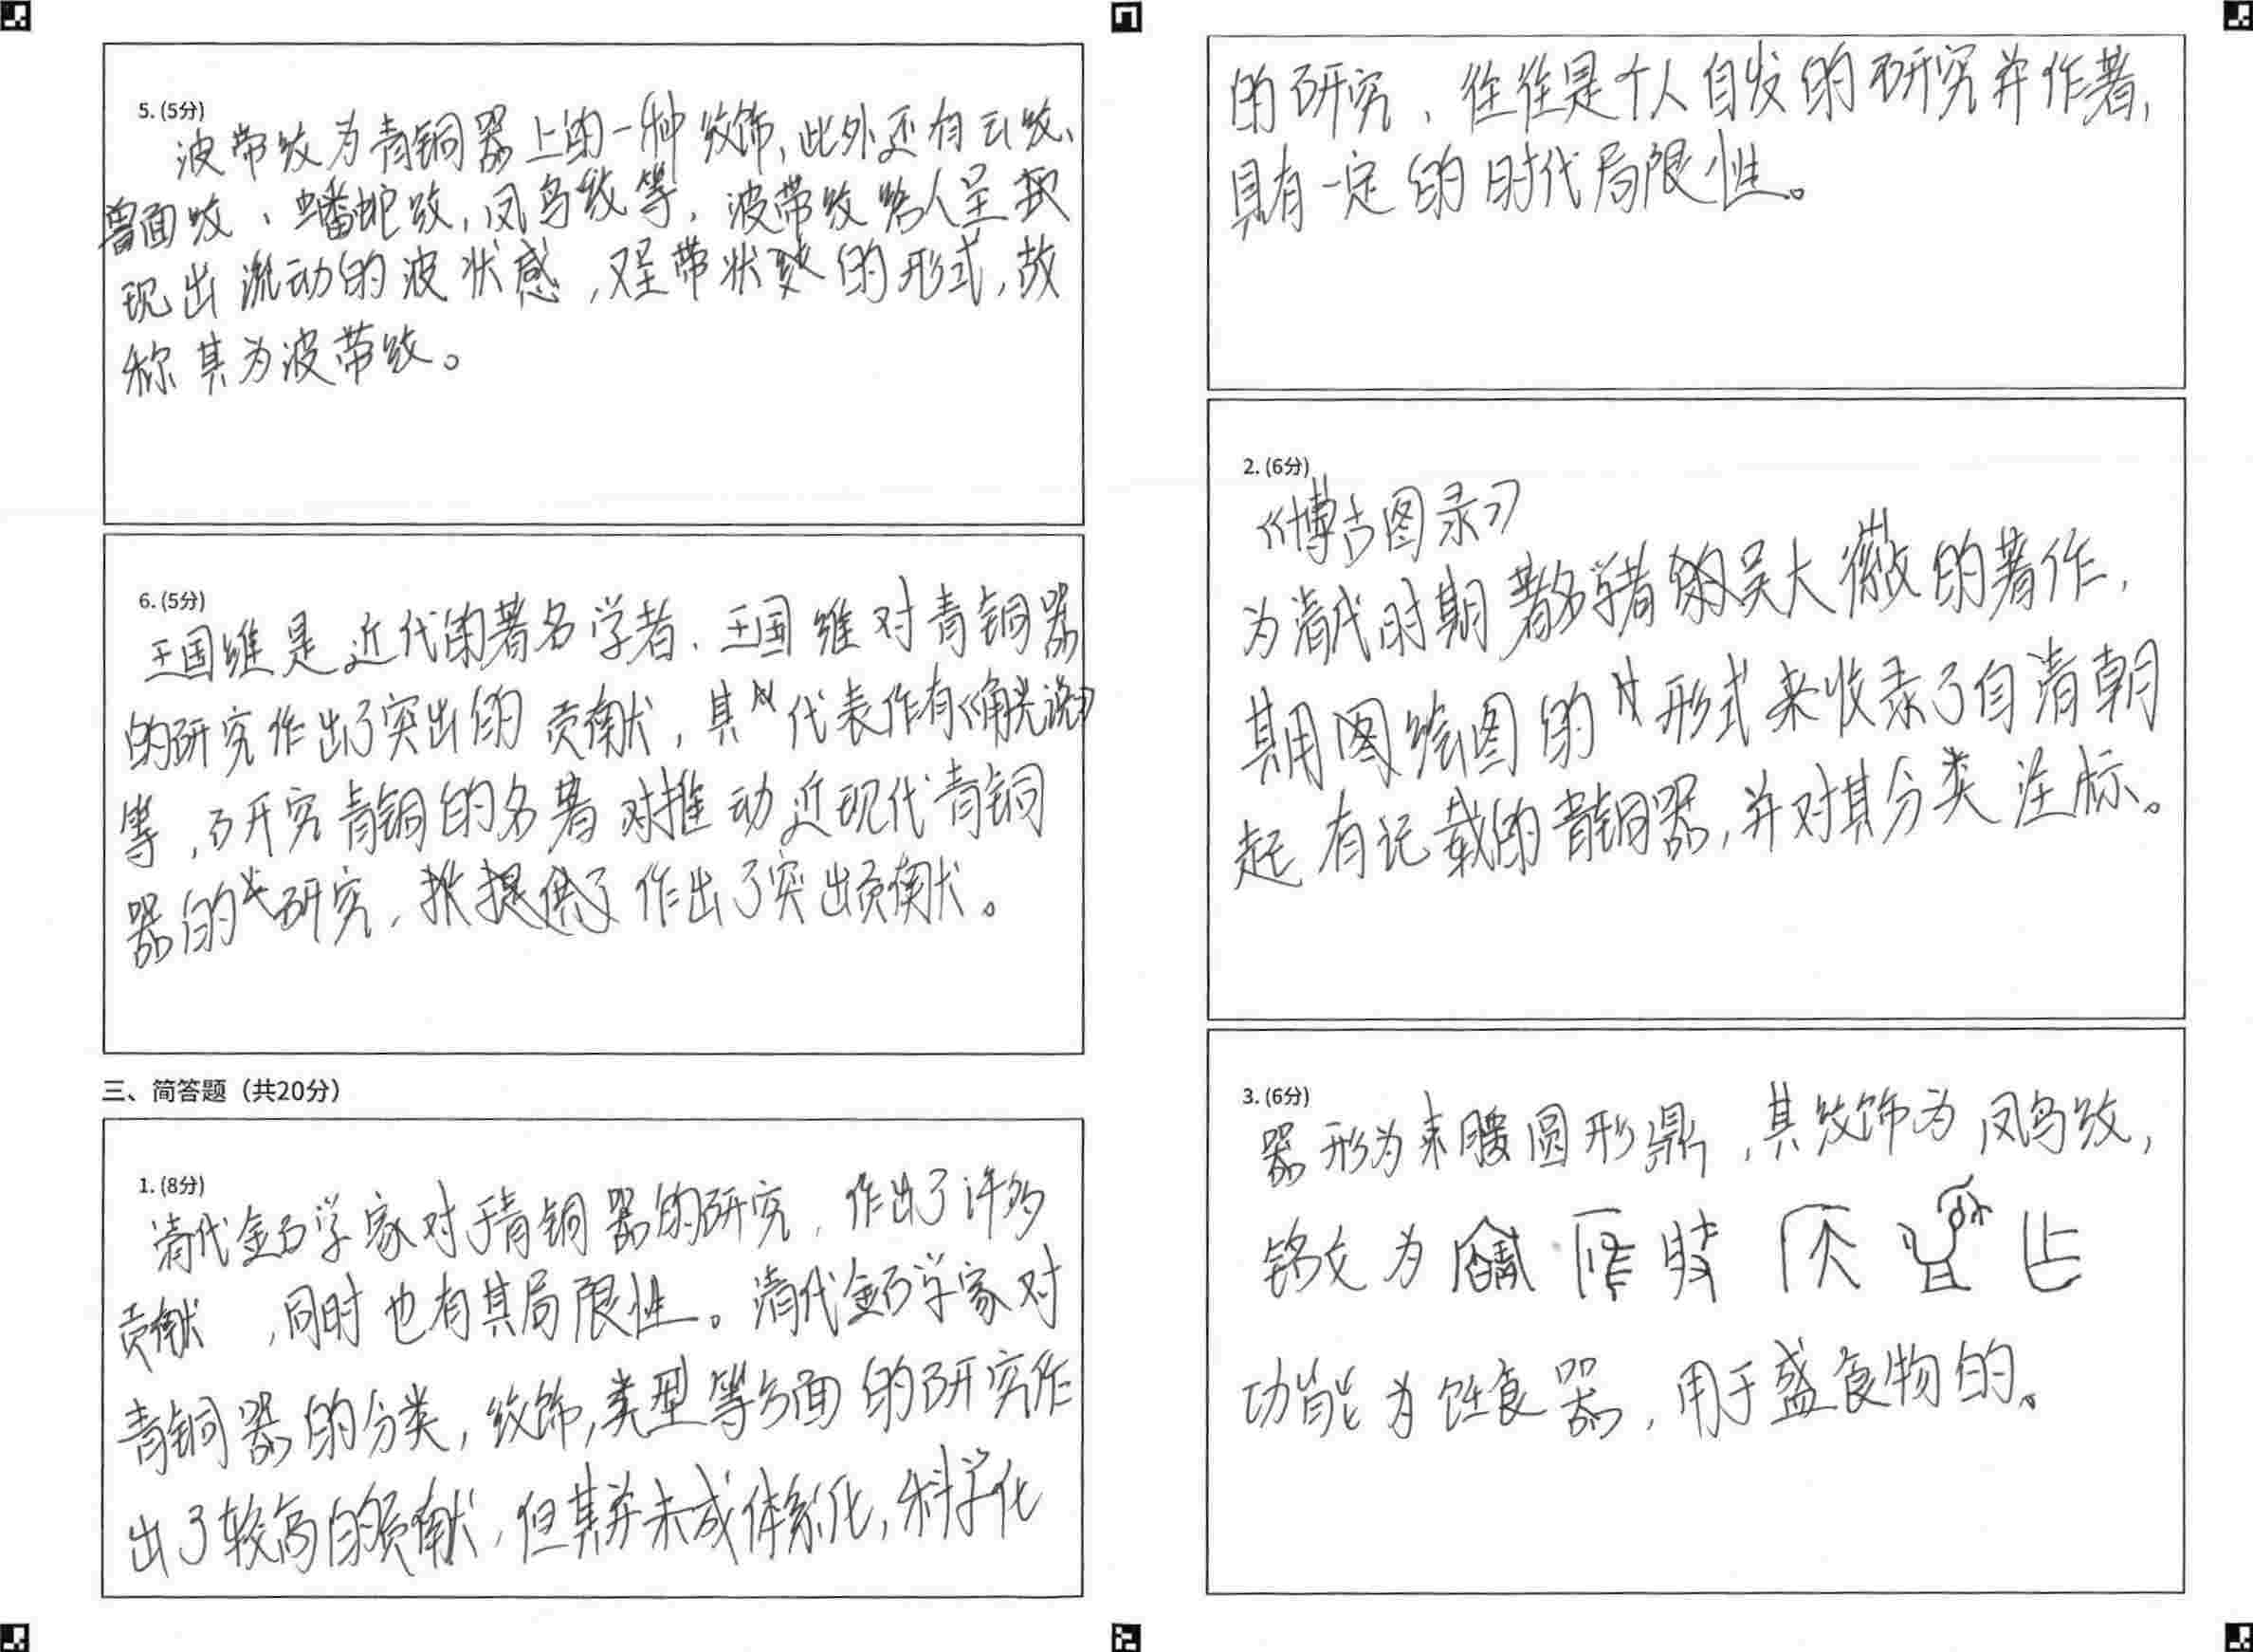 5. (5分)
波带纹为青铜器上的一种纹饰,此外还有云纹、
兽面纹、蟠蛇纹,凤鸟纹等,波带纹给人呈
现出流动的波状感,又呈带状的形式,故
称其为波带纹。
6. (5分)
王国维是近代的著名学者,王国维对青铜器
的研究作出了突出的贡献,其代表作有《觥说》
等,研究青铜的名著对推动近现代青铜
器的研究,作出了突出贡献。
三、简答题(共20分)
1. (8分)
清代金石学家对于青铜器的研究,作出了许多
贡献,同时也有其局限性。清代金石学家对
青铜器的分类,纹饰,类型等方面的研究作
出了较高的贡献,但其并未成体系化,科学化
的研究,往往是个人自发的研究并作著,
具有一定的时代局限性。
2. (6分)
《博古图录》
为清代时期著名学者吴大澂的著作,
其用绘图的形式来收录了自清朝
起有记载的青铜器,并对其分类注标。
3. (6分)
器形为束腰圆形鼎,其纹饰为凤鸟纹,
铭文为
功能为饪食器,用于盛食物的。